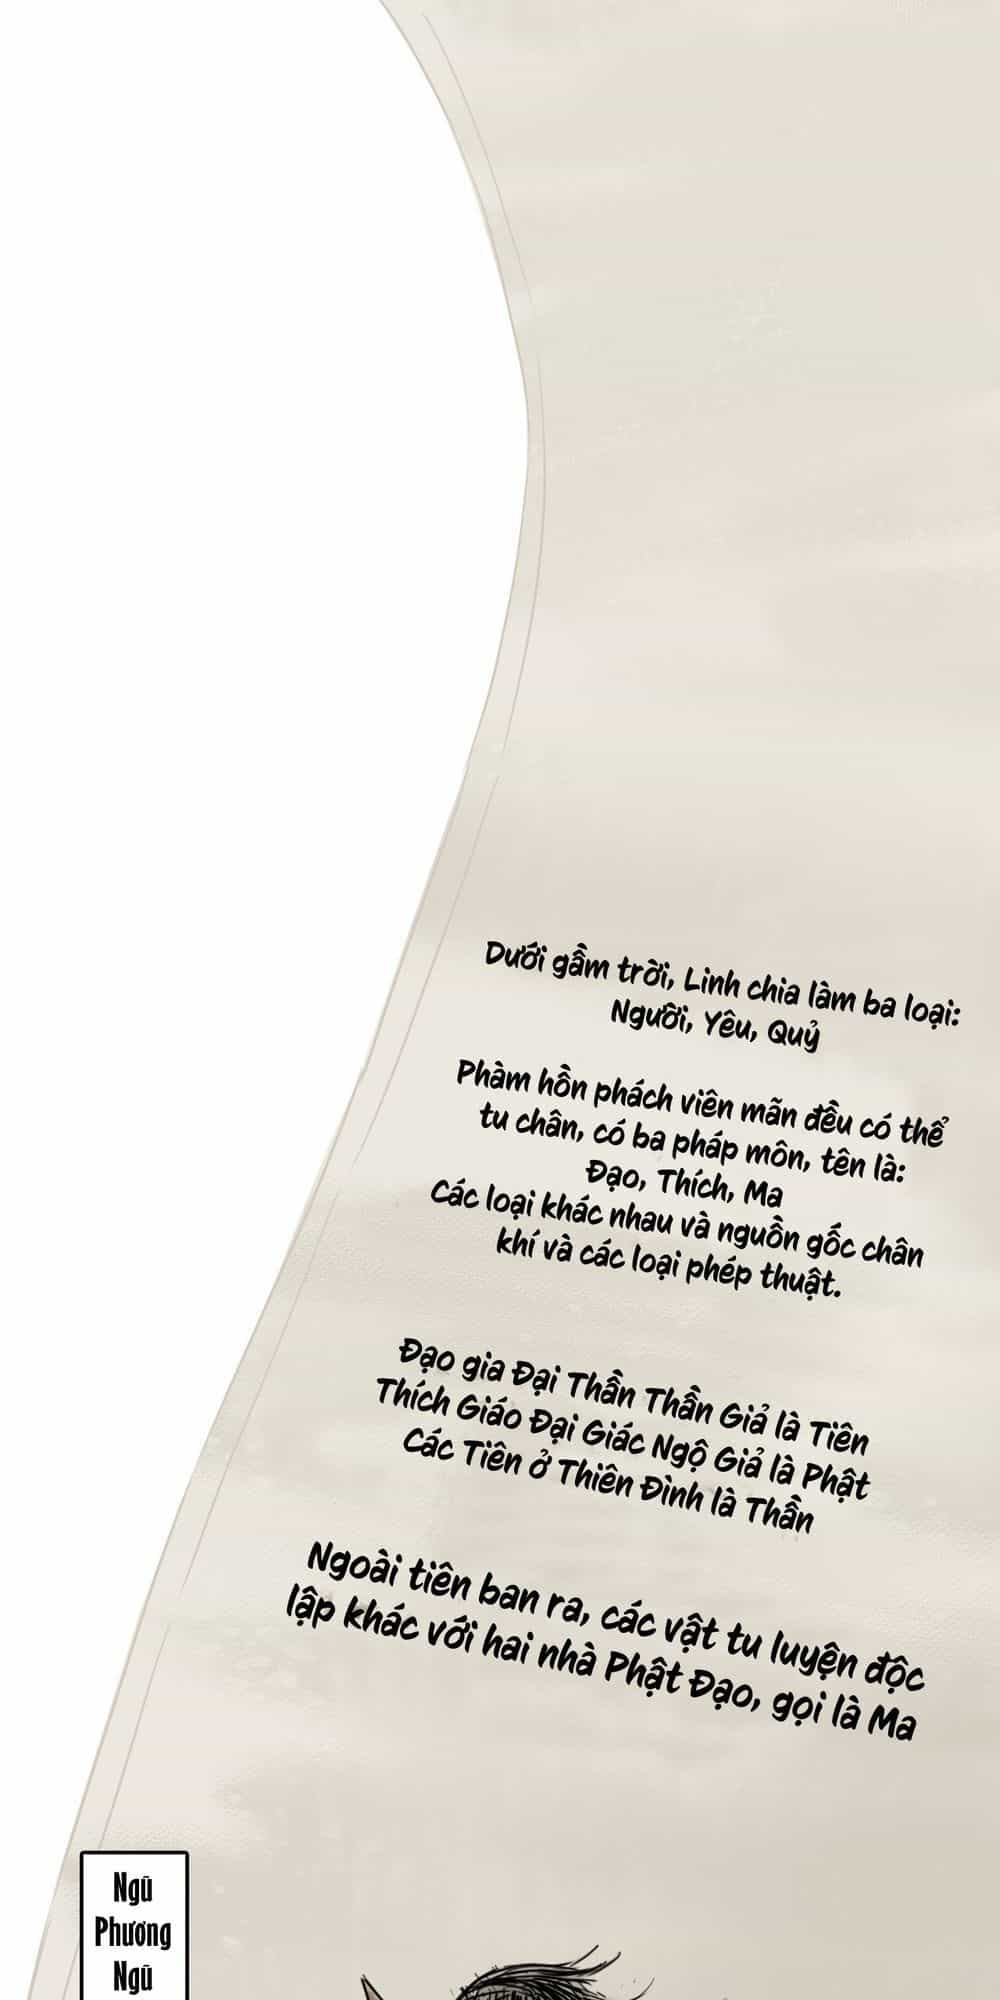 Dưới gầm trời, Linh chia làm ba loại:
Người, Yêu, Quỷ
Phàm hồn phách viên mãn đều có thể
tu chân, có ba pháp môn, tên là:
Đạo, Thích, Ma
Các loại khác nhau và nguồn gốc chân
khí và các loại phép thuật.
Đạo gia Đại Thần Thần Giả là Tiên
Thích Giáo Đại Giác Ngộ Giả là Phật
Các Tiên ở Thiên Đình là Thần
Ngoài tiên ban ra, các vật tu luyện độc
lập khác với hai nhà Phật Đạo, gọi là Ma
Ngũ
Phương
Ngũ